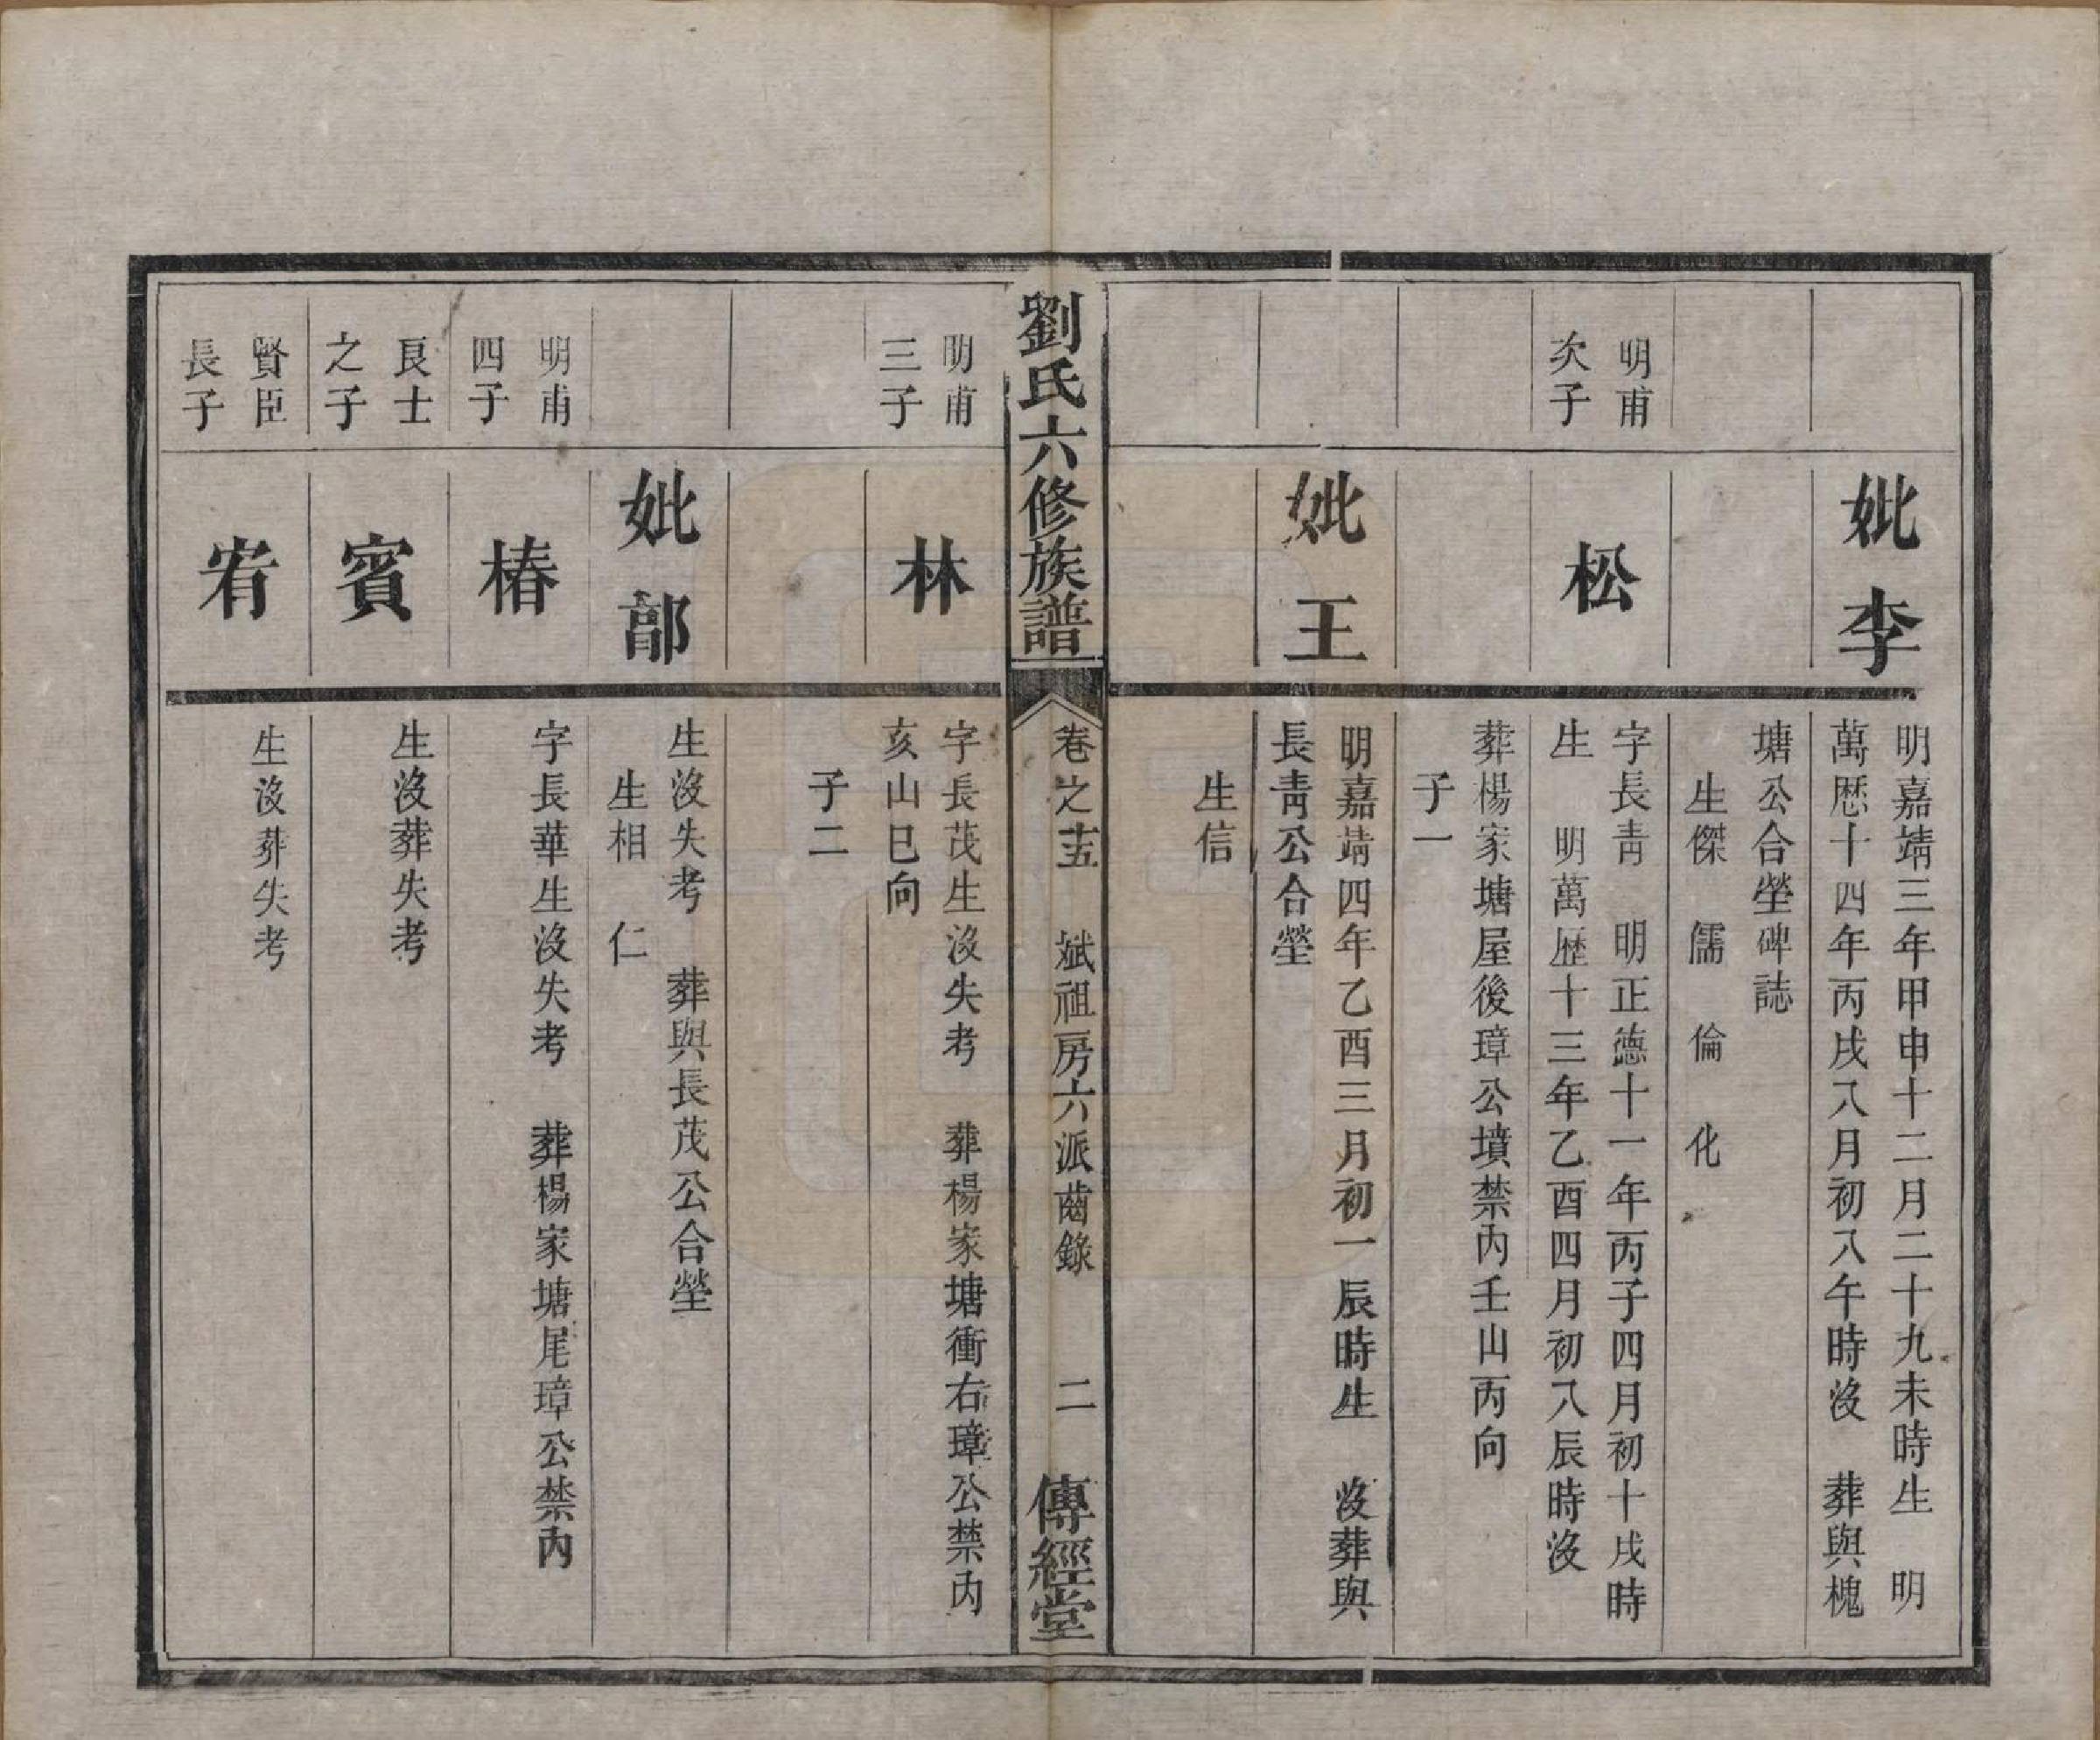 妣李
明嘉靖三年甲申十二月二十九未時生　明
萬歷十四年丙戌八月初八午時沒　葬與槐
塘公合塋碑誌
生傑　儒　倫　化
明甫
次子
松
字長青　明正德十一年丙子四月初十戌時
生　明萬歷十三年乙酉四月初八辰時沒
葬楊家塘屋後璋公墳禁內壬山丙向
子一
妣王
明嘉靖四年乙酉三月初一辰時生　沒葬與
長青公合塋
生信
劉氏六修族譜
卷之十五　斌祖房六派齒錄　二
傳經堂
明甫
三子
林
字長茂生沒失考　葬楊家塘衝右璋公禁內
亥山巳向
子二
妣鄗
生沒失考　葬與長茂公合塋
生相　仁
明甫
四子
椿
字長華生沒失考　葬楊家塘尾璋公禁內
良士
之子
賓
生沒葬失考
賢臣
長子
宥
生沒葬失考